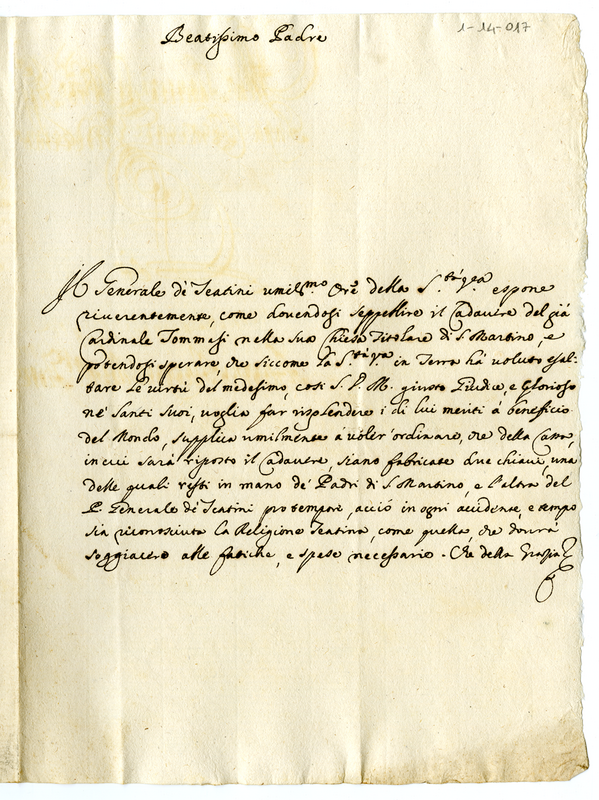 1-14-017
Beatissimo Padre
Il Generale de' Teatini umiliss.mo Ore della S.tà V.ra espone
riverentemente, come dovendosi seppellire il Cadavere del già
Cardinale Tommasi nella sua Chiesa Titolare di S. Martino, e
potendosi sperare, che siccome la S.tà V.ra in Terra hà voluto esal-
tare le virtù del medesimo, così S. D. M. giusto Giudice, e Glorioso
ne' Santi Suoi, voglia far risplendere i di lui meriti à beneficio
del Mondo, supplica umilmente à voler ordinare, che della Cassa,
in cui sarà riposto il Cadavere, siano fabricate due chiavi, una
delle quali resti in mano de' Padri di S. Martino, e l'altra del
P. Generale de' Teatini pro tempore, acciò in ogni accidente, e tempo
sia riconosciuta la Religione Teatina, come quella, che dovrà
soggiacere alle fatiche, e spese necessarie. Che della Grazia